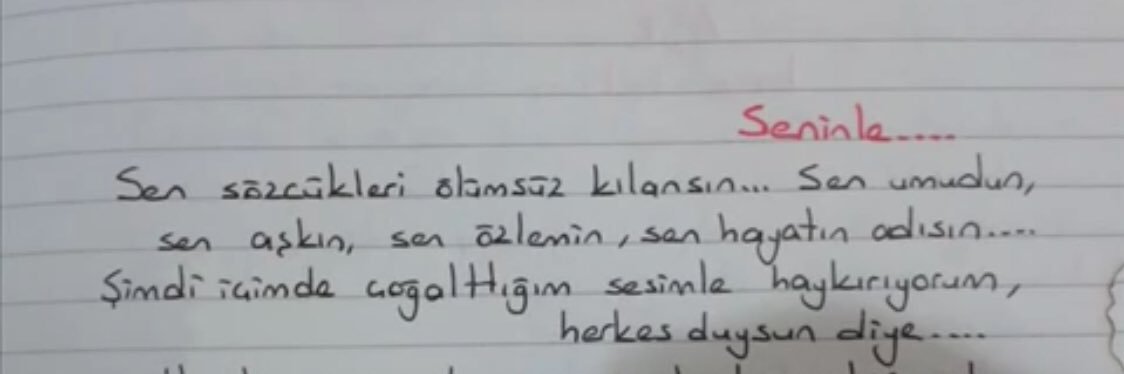 Seninle.....
Sen sözcükleri ölümsüz kılansın... Sen umudun,
sen aşkın, sen özlemin, sen hayatın adısın....
Şimdi içimde çoğalttığım sesimle haykırıyorum,
herkes duysun diye.....